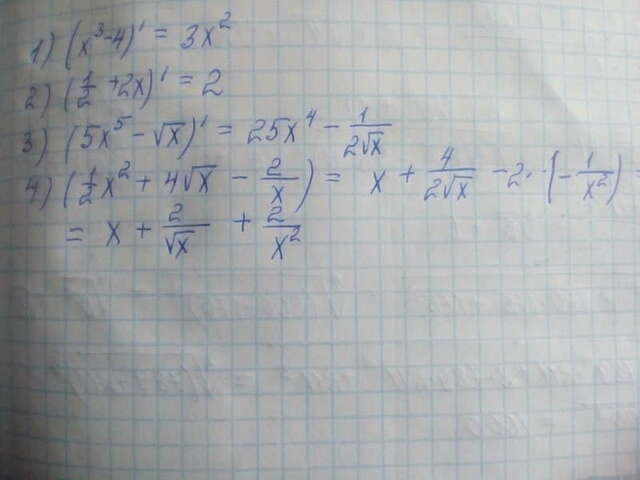 1) (x³-4)' = 3x²
2) (1/2 +2x)' = 2
3) (5x⁵ - √x)' = 25x⁴ - 1/(2√x)
4) (1/2 x² + 4√x - 2/x) = x + 4/(2√x) - 2 · (-1/x²) =
= x + 2/√x + 2/x²